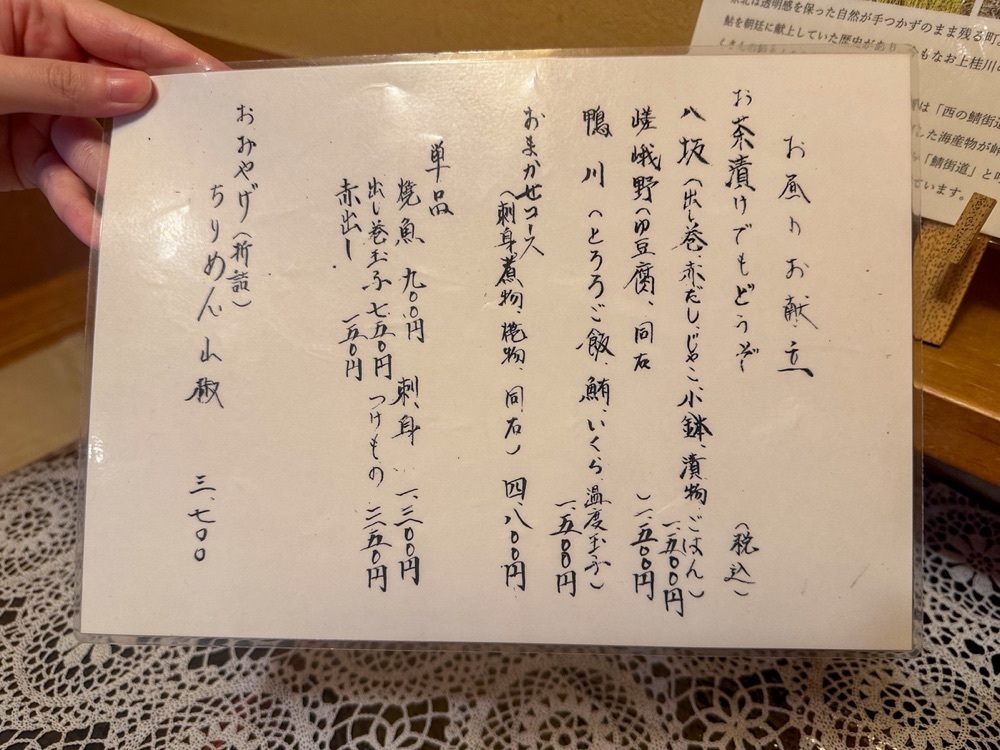 お昼のお献立
お茶漬けでもどうぞ （税込）
八坂（出し巻、赤だし、じゃこ、小鉢、漬物、ごはん）
一、五〇〇円
嵯峨野（ゆ豆腐、同右 ）一、五〇〇円
鴨川（とろろご飯、鮪、いくら、温度玉子）
一、五〇〇円
おまかせコース
（刺身、煮物、焼物、同右） 四、八〇〇円
単品
焼魚 九〇〇円 刺身 一、三〇〇円
出し巻玉子 七五〇円 つけもの 三五〇円
赤出し 一五〇円
おみやげ（折詰）
ちりめん山椒 三、七〇〇
京北は透明感を保った自然が手つかずのまま残る町
鮎を朝廷に献上していた歴史があり
もなお上桂川の
は「西の鯖街道
した海産物が
「鯖街道」と
ています。